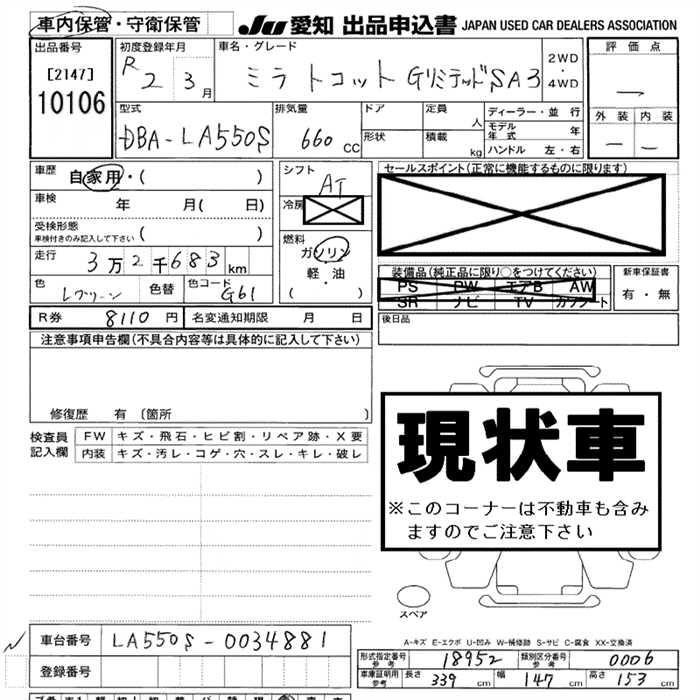 車内保管・守衛保管 JU 愛知 出品申込書 JAPAN USED CAR DEALERS ASSOCIATION
出品番号
[2147]
10106
初度登録年月
R 2 3月
車名・グレード
ミラ トコット GリミテッドSA3
2WD
・
4WD
評価点
—
外装 内装
— —
型式
DBA-LA550S
排気量
660 CC
ドア
形状
定員 人
積載 kg
ディーラー・並行
モデル年式 年
ハンドル 左・右
車歴 自家用・( )
車検 年 月( 日)
受検形態
車検付きのみ記入して下さい ( )
走行 3万2千683km
色 Lグリーン 色替 色コード G61
シフト
AT
冷房
燃料
ガソリン
軽・油
( )
セールスポイント(正常に機能するものに限ります)
装備品(純正品に限り○をつけてください)
PS PW エアB AW
SR ナビ TV カワシート
新車保証書
有・無
R券 8110円 名変通知期限 月 日
後日品
注意事項申告欄(不具合内容等は具体的に記入して下さい)
修復歴 有 〔箇所 〕
検査員
記入欄
FW キズ・飛石・ヒビ割・リペア跡・X要
内装 キズ・汚レ・コゲ・穴・スレ・キレ・破レ
現状車
※このコーナーは不動車も含み
ますのでご注意下さい
スペア
A-キズ E-エクボ U-凹み W-補修跡 S-サビ C-腐食 XX-交換済
車台番号 LA550S-0034881
登録番号
形式指定番号
参考
18952
類別区分番号
参考
0006
車庫証明用
参考
長さ 339cm 幅 147cm 高さ 153cm